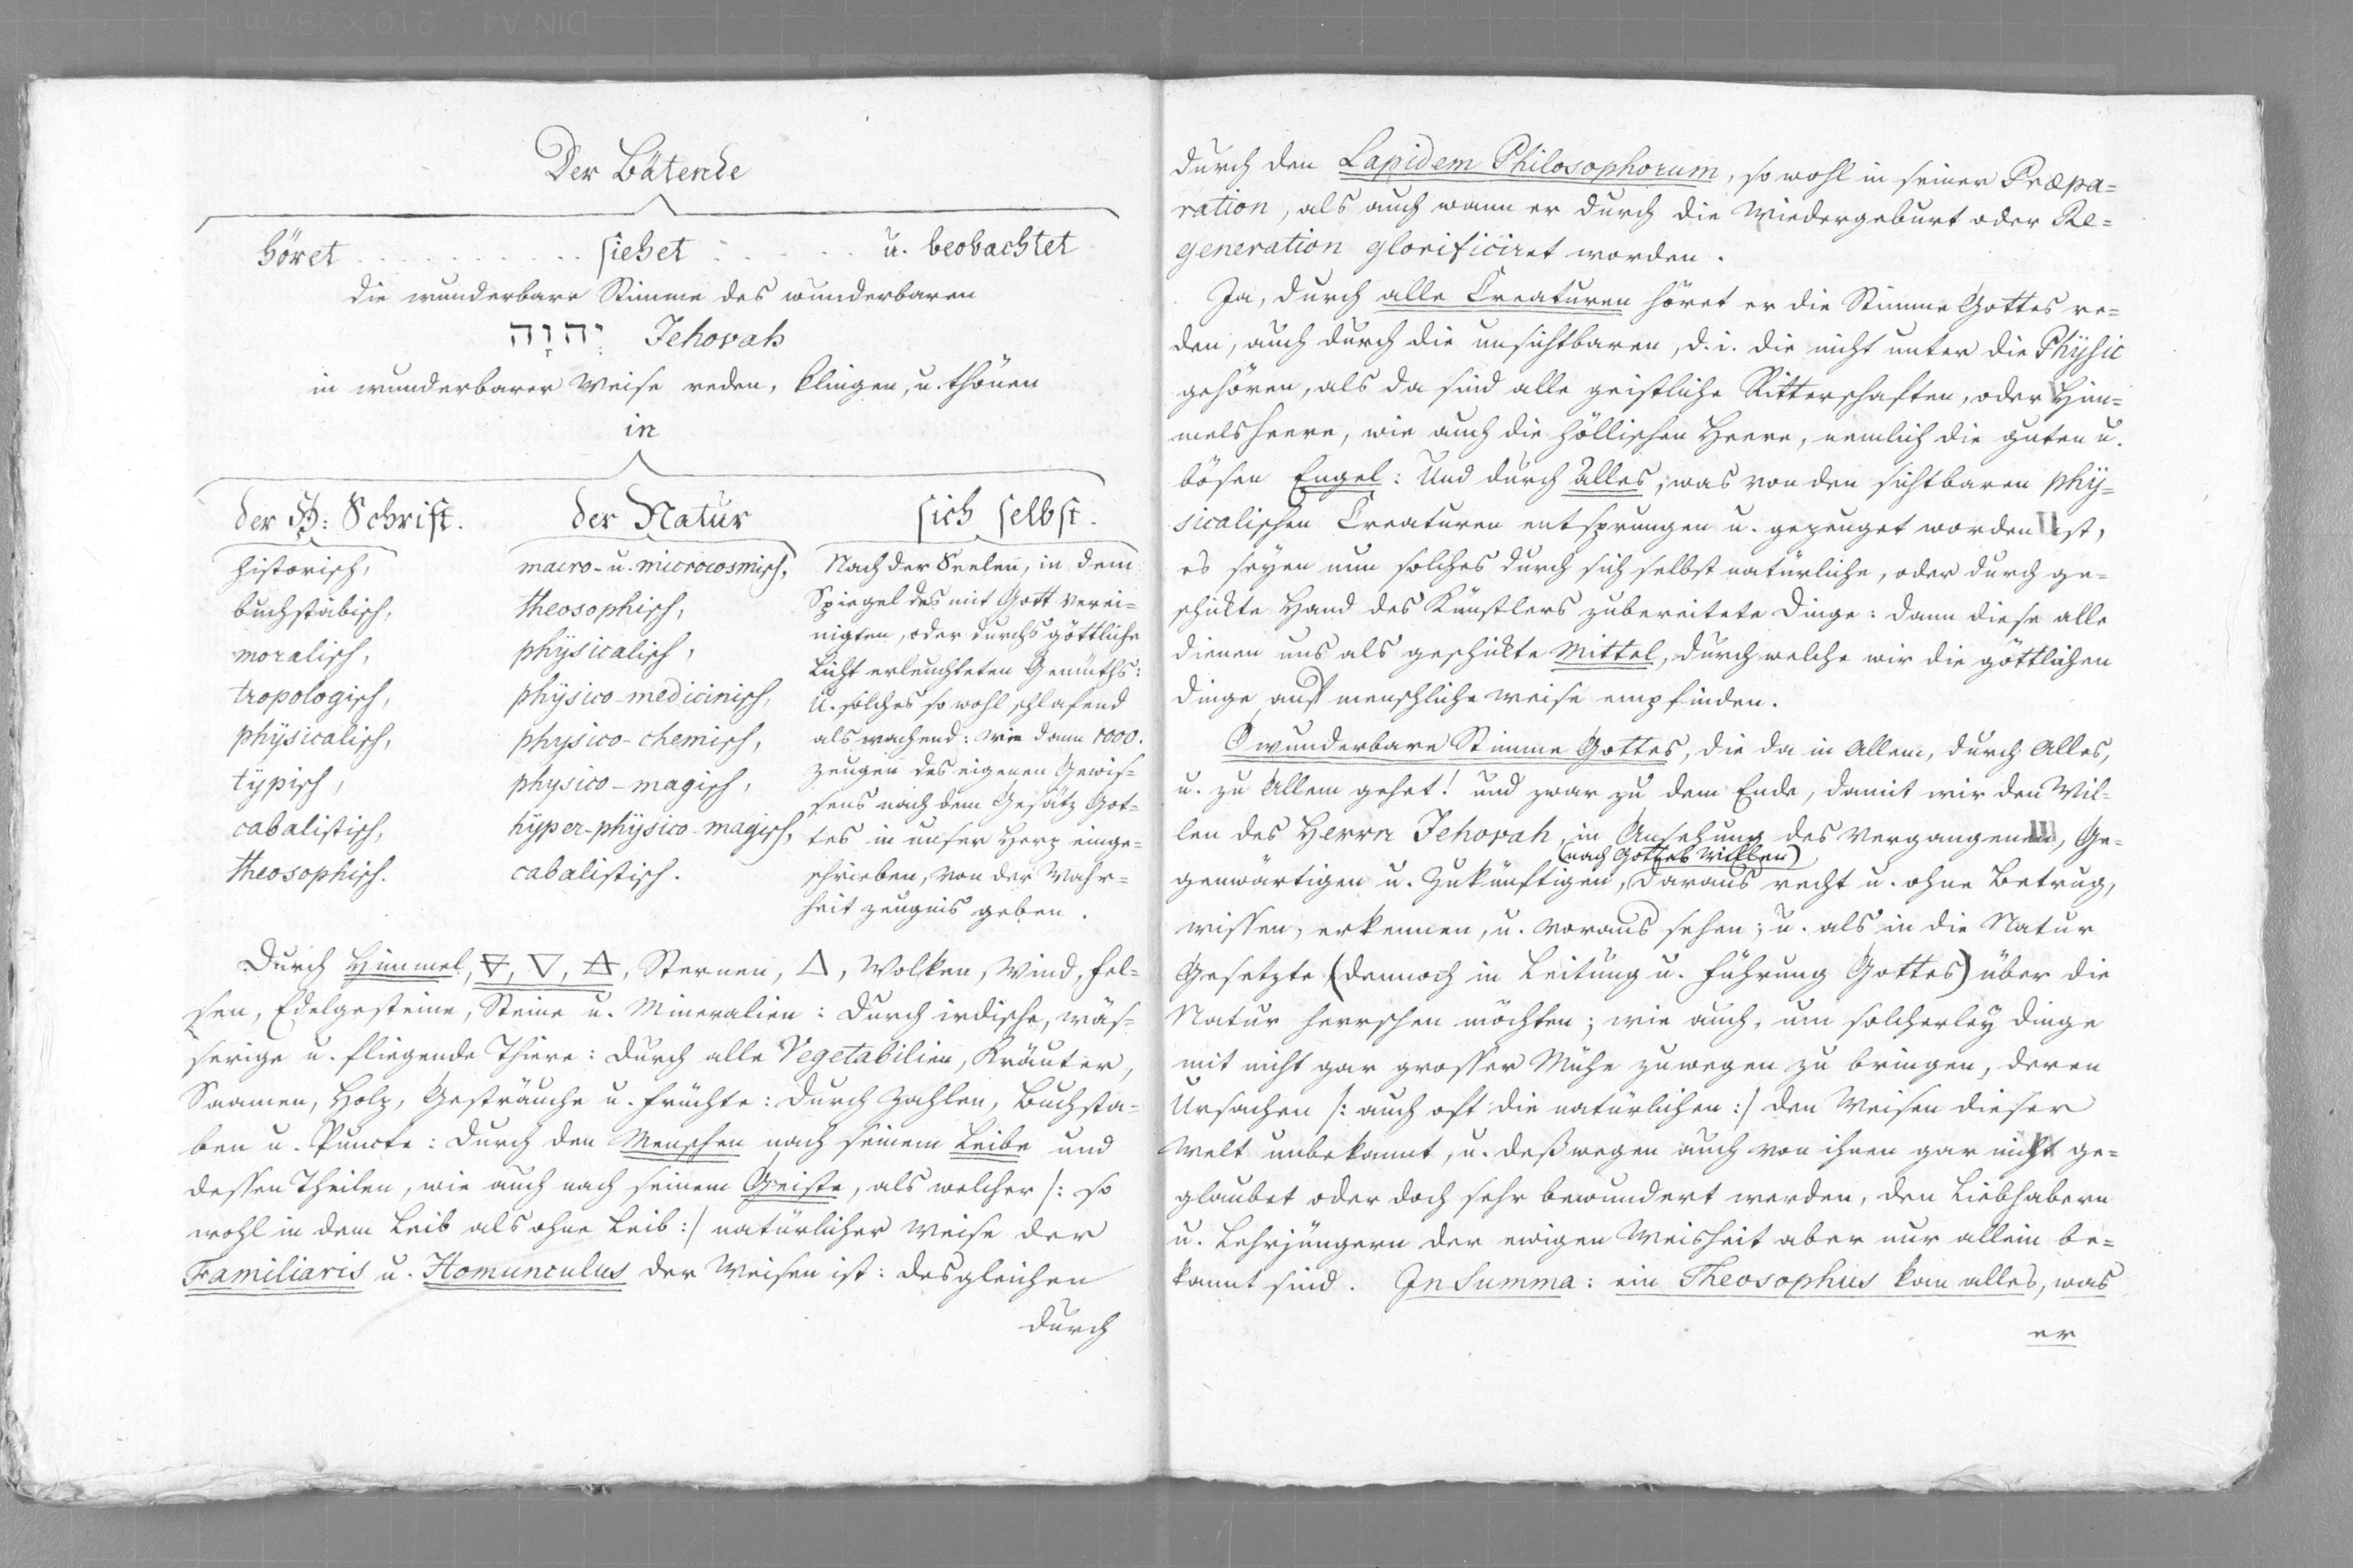 Der Bätende
höret . . . . . . . . . . siehet . . . . . . u. beobachtet
die wunderbare Stimme des wunderbaren
יְהוָה Jehovah
in wunderbarer Weise reden, klingen, u. thönen
in
der H: Schrift.
historisch,
buchstäbisch,
moralisch,
tropologisch,
physicalisch,
typisch,
cabalistisch,
theosophisch.
der Natur
macro- u. microcosmisch,
theosophisch,
physicalisch,
physico-medicinisch,
physico-chemisch,
physico-magisch,
hyper-physico-magisch,
cabalistisch.
sich selbst.
Nach der Seelen, in dem
Spiegel des mit Gott verei=
nigten, oder durchs göttliche
Licht erleuchteten Gemüths:
u. solches so wohl schlafend
als wachend: wie dann 1000.
Zeugen des eigenen Gewis=
sens nach dem Gesätz Got=
tes in unser Herz einge=
schrieben, von der Wahr=
heit zeugnis geben.
Durch Himmel, 🜃, 🜄, 🜁, Sternen, 🜂, Wolken, Wind, Fel=
sen, Edelgesteine, Steine u. Mineralien: durch irdische, wäs=
serige u. fliegende Thiere: durch alle Vegetabilien, Kräuter,
Saamen, Holz, Gesträuche u. Früchte: durch Zahlen, Buchsta=
ben u. Puncte: durch den Menschen nach seinem Leibe und
dessen Theilen, wie auch nach seinem Geiste, als welcher /: so
wohl in dem Leib als ohne Leib :/ natürlicher Weise der
Familiaris u. Homunculus der Weisen ist: desgleichen
durch
durch den Lapidem Philosophorum, so wohl in seiner Præpa=
ration, als auch wann er durch die Wiedergeburt oder Re=
generation glorificiret worden.
Ja, durch alle Creaturen höret er die Stimme Gottes re=
den, auch durch die unsichtbaren, d. i. die nicht unter die Physic
gehören, als da sind alle geistliche Ritterschaften, oder Him=
melsheere, wie auch die höllischen Heere, nemlich die guten u.
bösen Engel: Und durch alles, was von den sichtbaren phy=
sicalischen Creaturen entsprungen u. gezeuget worden ist,
es seyen nun solches durch sich selbst natürliche, oder durch ge=
schickte Hand des Künstlers zubereitete Dinge: dann diese alle
dienen uns als geschickte Mittel, durch welche wir die göttlichen
Dinge auf menschliche weise empfinden.
O wunderbare Stimme Gottes, die da in Allem, durch Alles,
u. zu Allem gehet! und zwar zu dem Ende, damit wir den Wil=
len des Herrn Jehovah, in Ansehung des Vergangenen, Ge=
(nach Gottes Willen)
genwärtigen u. Zukünftigen, daraus recht u. ohne Betrug,
wissen, erkennen, u. voraus sehen; u. als in die Natur
Gesetzte (dennoch in Leitung u. Führung Gottes) über die
Natur herrschen möchten; wie auch, um solcherley Dinge
mit nicht gar grosser Mühe zuwegen zu bringen, deren
Ursachen /: auch oft die natürlichen :/ den Weisen dieser
Welt unbekannt, u. deßwegen auch von ihnen gar nicht ge=
glaubet oder doch sehr bewundert werden, den Liebhabern
u. Lehrjüngern der ewigen Weisheit aber nur allein be=
kannt sind. In Summa: ein Theosophus kan alles, was
er